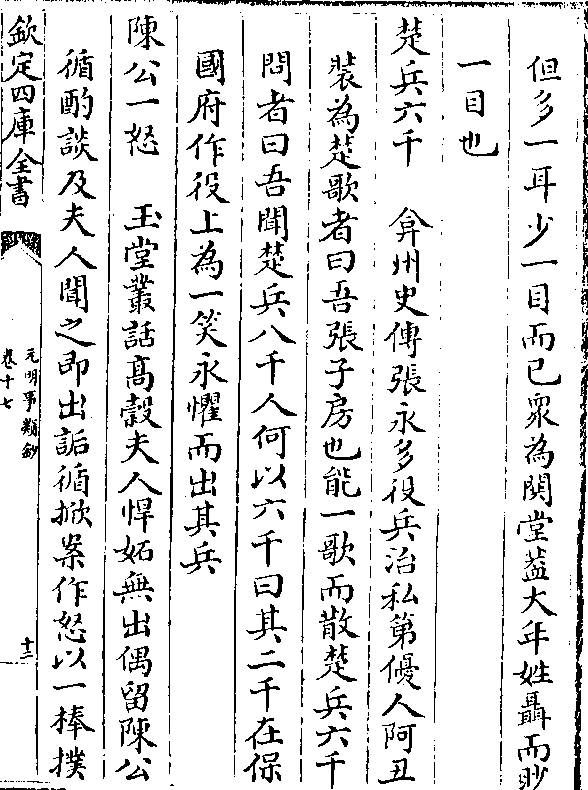 但多一耳少一目而已衆為閧堂蓋大年姓聶而眇
一目也
楚兵六千　弇州史傳張永多役兵治私第優人阿丑
裝為楚歌者曰吾張子房也能一歌而散楚兵六千
問者曰吾聞楚兵八千人何以六千曰其二千在保
國府作役上為一笑永懼而出其兵
陳公一怒　玉堂叢話高穀夫人悍妬無出偶留陳公
循酌談及夫人聞之即出詬循掀案作怒以一棒撲
欽定四庫全書
元明事類鈔
卷十七
十三